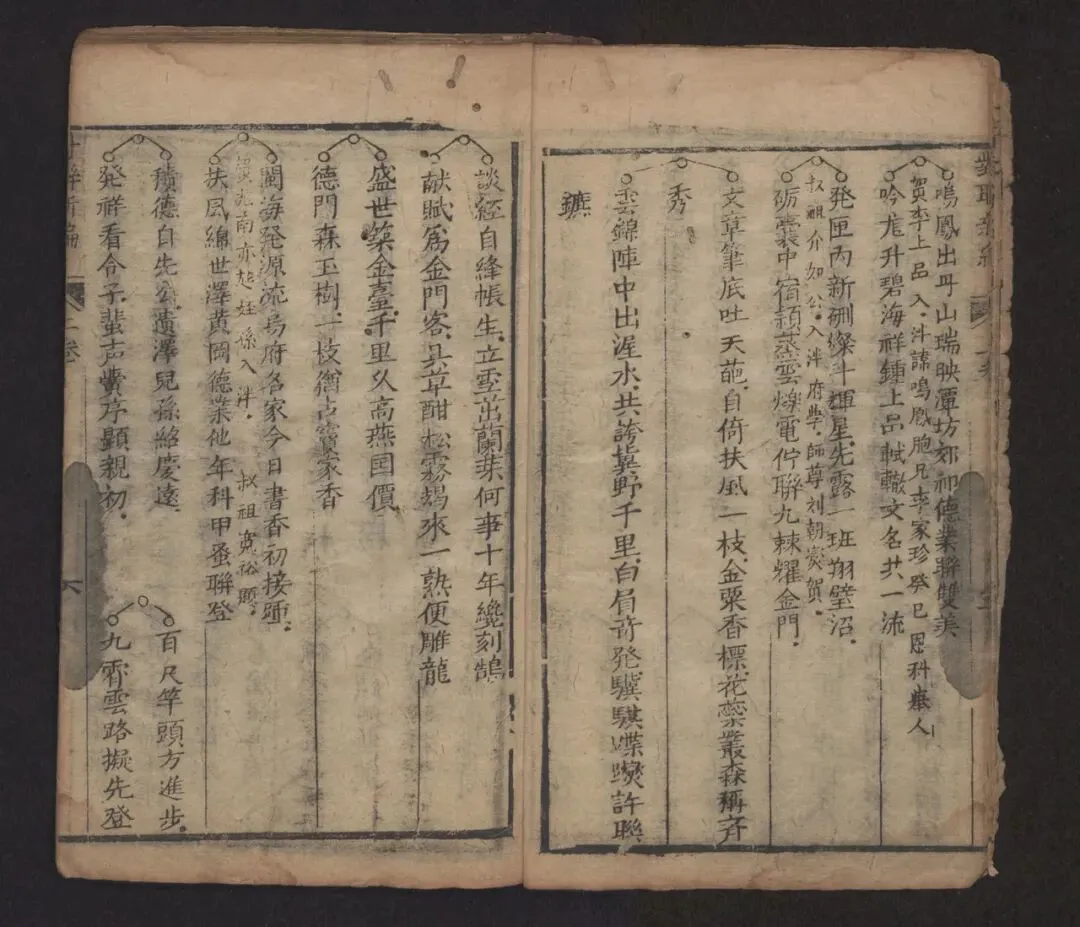 鳴鳳出丹山瑞映潭坊郊祁德業聯雙美
賀李上品入泮諱鳴鳳胞兄李家珍癸巳恩科舉人
吟龍升碧海祥鍾上品軾轍文名共一流
発匣丙新硎燦斗輝星先露一班翔壁沼.
叔祖介如公.入泮府學.師尊刘朝宾賀.
砺囊中宿頴蒸雲焯電佇聯九棘耀金門.
文章筆底吐天葩.自倚扶風一枝.金粟香標.花蘂叢森稱斉
秀
雲錦陣中出渥水.共誇冀野千里.白眉竒発驥騏蹀躞許聯
鑣
談経自絳帳生.立雪茁蘭荪何事十年纔刻鵠
献賦為金門客.具草酣松霧朅來一熟便雕龍
盛世築金臺.千里久高燕囯價
德門森玉樹.一枝犹古竇家香
閩海発源流烏府名家今日書香初接踵.
賀元南亦起姪孫入泮. 叔祖寛裕題.
扶風綿世澤黄岡德業他年科甲蚤聨登
積德自先公.遺澤兒孫紹慶遠
発祥看令子.蜚声黌序顕親初.
百尺竿頭.方進步.
九霄雲路擬先登
二卷
六